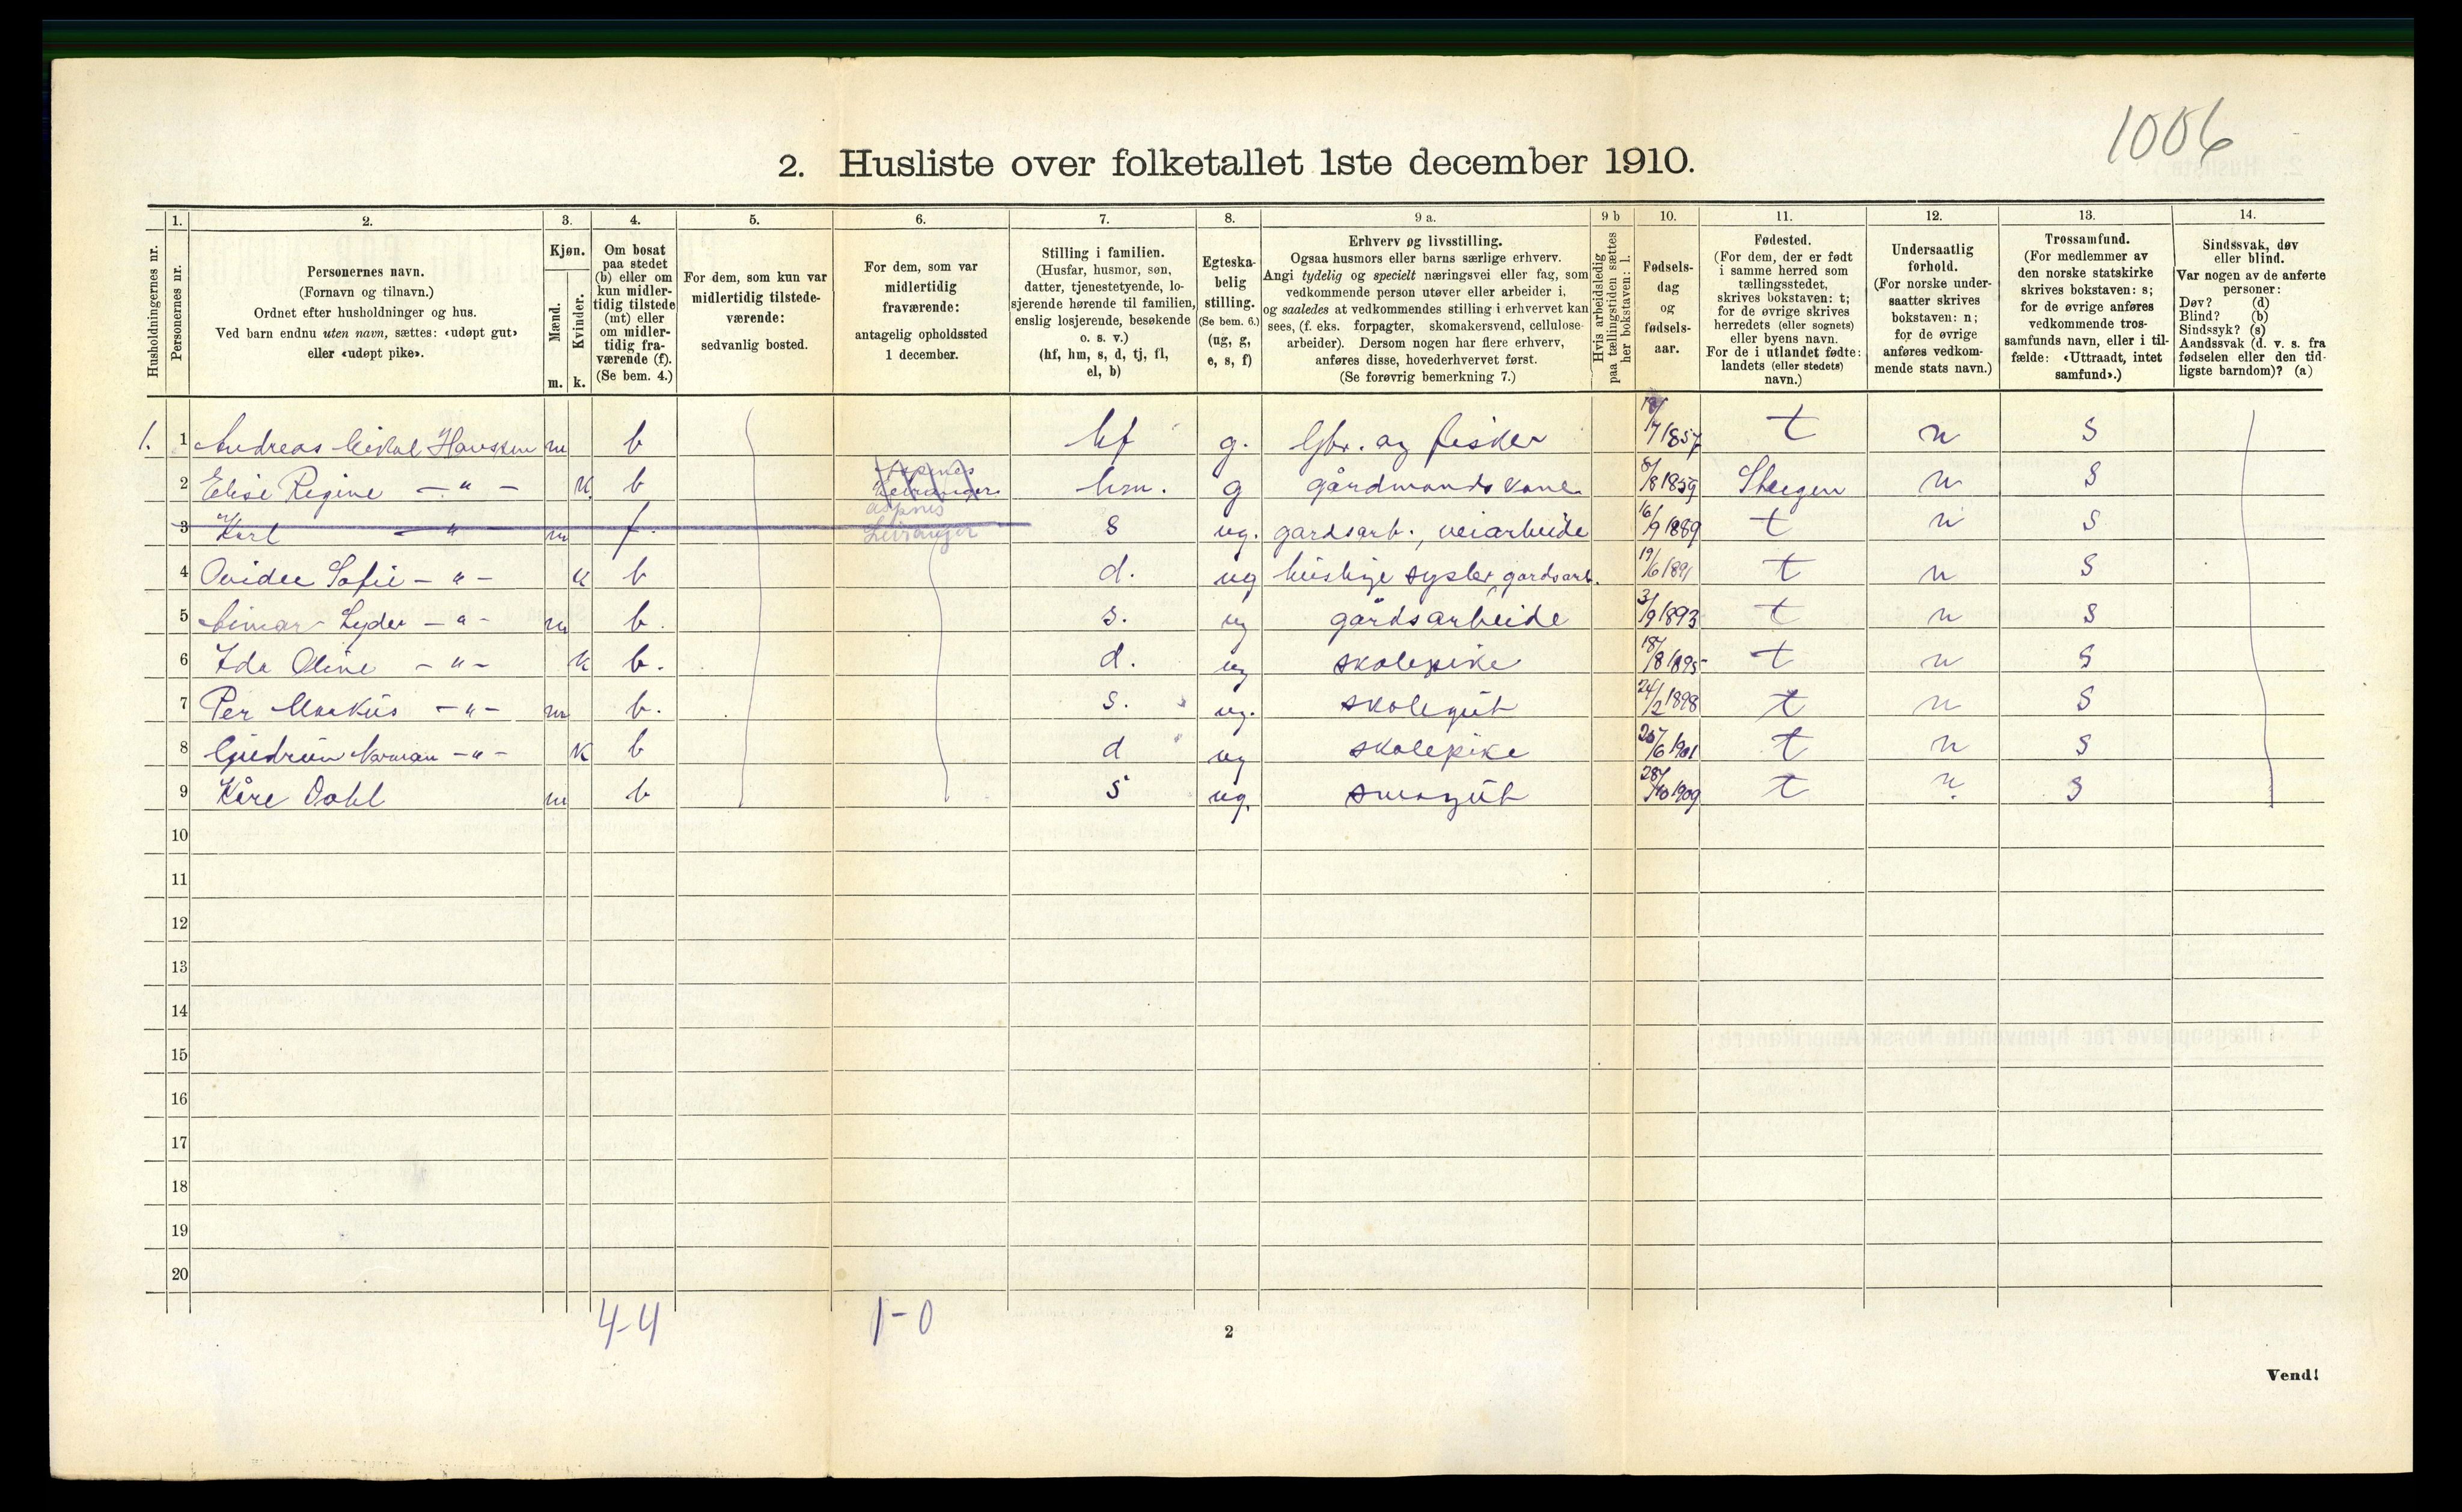 1006
2. Husliste over folketallet 1ste december 1910.
Husholdningernes nr.
1.
Personernes nr.
2.
Personernes navn.
(Fornavn og tilnavn.)
Ordnet efter husholdninger og hus.
Ved barn endnu uten navn, sættes: «udøpt gut»
eller «udøpt pike».
3.
Kjøn.
Mænd.
Kvinder.
m. k.
4.
Om bosat
paa stedet
(b) eller om
kun midler-
tidig tilstede
(mt) eller
om midler-
tidig fra-
værende (f).
(Se bem. 4.)
5.
For dem, som kun var
midlertidig tilstede-
værende:
sedvanlig bosted.
6.
For dem, som var
midlertidig
fraværende:
antagelig opholdssted
1 december.
7.
Stilling i familien.
(Husfar, husmor, søn,
datter, tjenestetyende, lo-
sjerende hørende til familien,
enslig losjerende, besøkende
o. s. v.)
(hf, hm, s, d, tj, fl,
el, b)
8.
Egteska-
belig
stilling.
(Se bem. 6.)
(ug, g,
e, s, f)
9 a.
Erhverv og livsstilling.
Ogsaa husmors eller barns særlige erhverv.
Angi tydelig og specielt næringsvei eller fag, som
vedkommende person utøver eller arbeider i,
og saaledes at vedkommendes stilling i erhvervet kan
sees, (f. eks. forpagter, skomakersvend, cellulose-
arbeider). Dersom nogen har flere erhverv,
anføres disse, hovederhvervet først.
(Se forøvrig bemerkning 7.)
9 b
Hvis arbeidsledig
paa tællingstiden sættes
her bokstaven: l.
10.
Fødsels-
dag
og
fødsels-
aar.
11.
Fødested.
(For dem, der er født
i samme herred som
tællingsstedet,
skrives bokstaven: t;
for de øvrige skrives
herredets (eller sognets)
eller byens navn.
For de i utlandet fødte:
landets (eller stedets)
navn.)
12.
Undersaatlig
forhold.
(For norske under-
saatter skrives
bokstaven: n;
for de øvrige
anføres vedkom-
mende stats navn.)
13.
Trossamfund.
(For medlemmer av
den norske statskirke
skrives bokstaven: s;
for de øvrige anføres
vedkommende tros-
samfunds navn, eller i til-
fælde: «Uttraadt, intet
samfund».)
14.
Sindssvak, døv
eller blind.
Var nogen av de anførte
personer:
Døv? (d)
Blind? (b)
Sindssyk? (s)
Aandssvak (d. v. s. fra
fødselen eller den tid-
ligste barndom)? (a)
1. 1 Andreas Mikal Hansen m b hf g. Gbr. og fisker /7 1857 t n S
2 Elise Regine -"- k b hm. g gårdmands kone 8/8 1859 Steigen n S
3 Karl -"- m f. Leiranger s ug. gardsarb., veiarbeide 16/9 1889 t n S
4 Ovidee Sofie -"- k b d. ug huslige sysler, gardsarb. 19/6 1891 t n S
5 Lyder -"- m b. s. ug gårdsarbeide 3/9 1893 t n S
6 Ida Oline -"- k b. d. ug skolepike 18/8 1895 t n S
7 Per Markus -"- m b. s. ug. skolegut 24/2 1898 t n S
8 Gudrun Norman -"- k b d ug skolepike /6 1901 t n S
9 Kåre Dahl m b s ug. smågut 28/10 1909 t n. S
10
11
12
13
14
15
16
17
18
19
20
4-4 1-0
2
Vend!